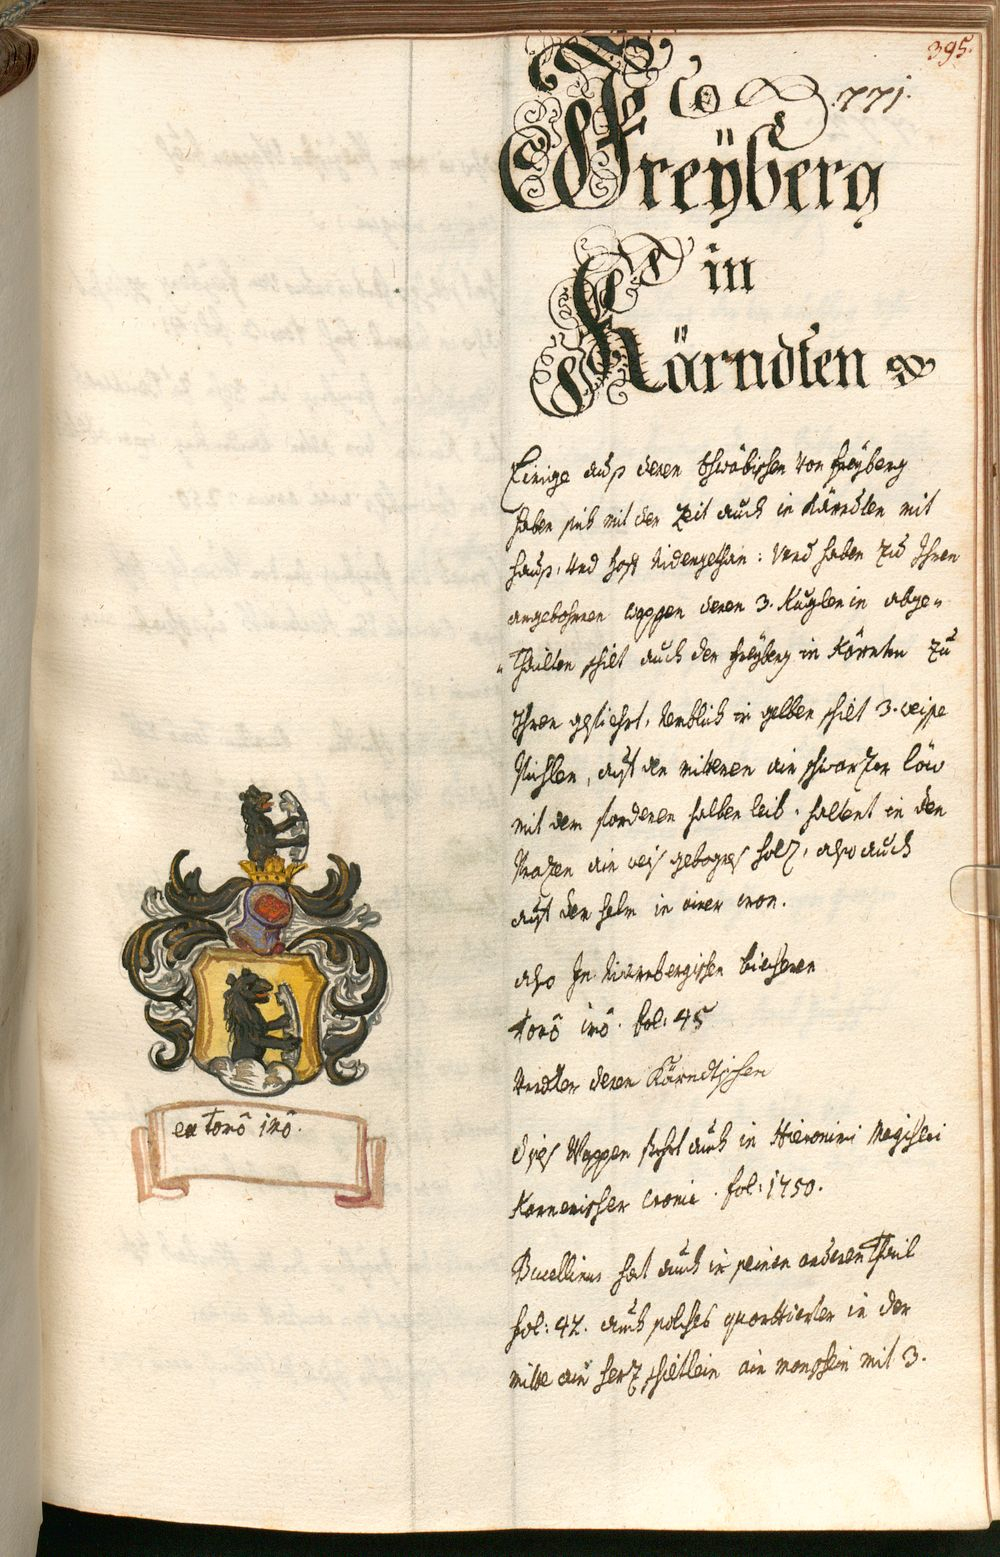 395.
No 771.
Freÿberg
in
Kärndten
Einige auß denen Schwäbischen von freÿberg
haben sich mit der Zeit auch in Kärndten mit
hauß, und hoff nidergethan: Vnd haben zu Ihren
angebohrnen wappen denen 3. Kuglen in abge-
-thailten schilt auch der freÿberg in Kärnten zu
Ihnen gefiehrt, Nemblich in gelben schilt 3. weisse
, auf den mitteren ain schwarzer löw
mit dem forderen halben leib, haltent in den
Prazen ain weis gebognes holz, also auch
auf den helm in einer cron.
also In Niernbergischen biecheren
Tomô imô. fol: 45
Vndter denen Kärndtischen
diss Wappen steht auch in Hieronimi Megiseri
Karnerischer Cronic. fol: 1750.
Bucellinus hat auch in seinen anderen Thail
fol: 42. auch solches quarttierter in der
mitte ain herz schiltlein ain monschein mit 3.
ex Tomô imô.